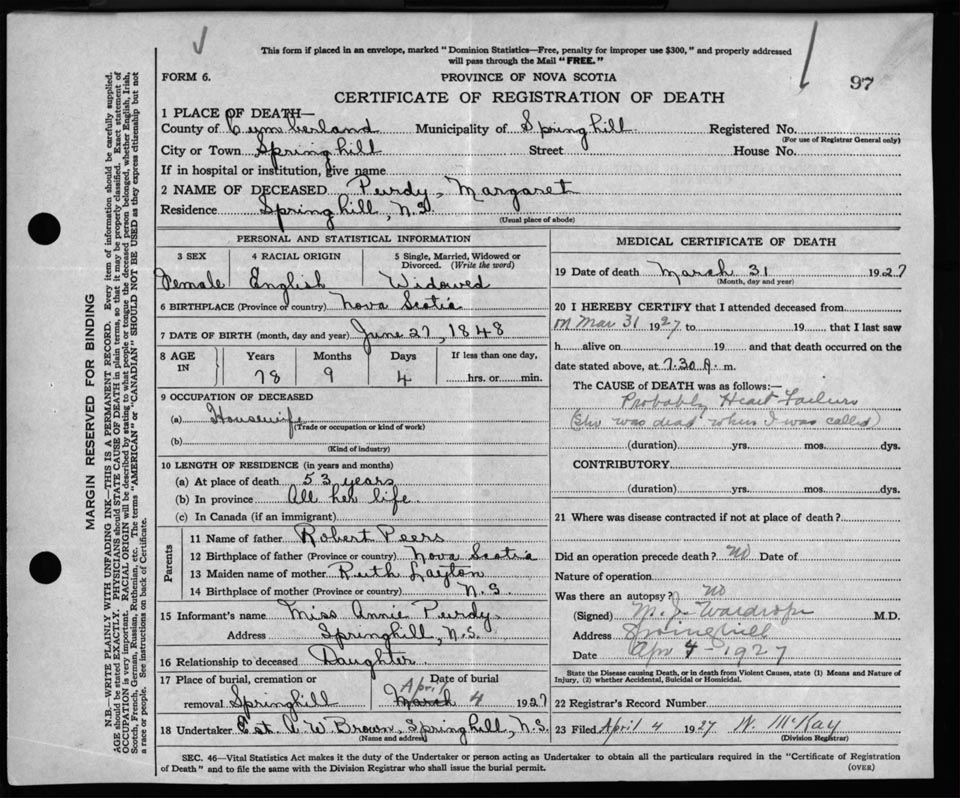 This form if placed in an envelope, marked "Dominion Statistics—Free, penalty for improper use $300," and properly addressed
will pass through the Mail "FREE."
97
FORM 6.
PROVINCE OF NOVA SCOTIA
CERTIFICATE OF REGISTRATION OF DEATH
1 PLACE OF DEATH—
County of Cumberland Municipality of Springhill Registered No.
(For use of Registrar General only)
City or Town Springhill Street House No.
If in hospital or institution, give name
2 NAME OF DECEASED Purdy, Margaret
Residence Springhill, N.S.
(Usual place of abode)
PERSONAL AND STATISTICAL INFORMATION
3 SEX 4 RACIAL ORIGIN 5 Single, Married, Widowed or Divorced. (Write the word)
Female English Widowed
6 BIRTHPLACE (Province or country) Nova Scotia
7 DATE OF BIRTH (month, day and year) June 27, 1848
8 AGE IN Years Months Days If less than one day,
78 9 4 hrs. or min.
9 OCCUPATION OF DECEASED
(a) Housewife
(Trade or occupation or kind of work)
(b)
(Kind of industry)
10 LENGTH OF RESIDENCE (in years and months)
(a) At place of death 53 years
(b) In province All her life
(c) In Canada (if an immigrant)
Parents
11 Name of father Robert Peers
12 Birthplace of father (Province or country) Nova Scotia
13 Maiden name of mother Ruth Layton
14 Birthplace of mother (Province or country) N.S.
15 Informant's name Miss Annie Purdy
Address Springhill, N.S.
16 Relationship to deceased Daughter
17 Place of burial, cremation or Date of burial
April
removal Springhill March 4 1927
18 Undertaker Est. C. W Brown, Springhill, N.S.
(Name and address)
MEDICAL CERTIFICATE OF DEATH
19 Date of death March 31 1927
(Month, day and year)
20 I HEREBY CERTIFY that I attended deceased from
on Mar 31 1927 to 19 that I last saw
h alive on 19 and that death occurred on the
date stated above, at 7.30 A. m.
The CAUSE of DEATH was as follows:—
Probably Heart Failure
(She was dead when I was called)
(duration) yrs. mos. dys.
CONTRIBUTORY
(duration) yrs. mos. dys.
21 Where was disease contracted if not at place of death?
Did an operation precede death? No Date of
Nature of operation
Was there an autopsy? No
(Signed) M. J. Wardrope M.D.
Address Springhill
Date Apr 4 - 1927
State the Disease causing Death, or in death from Violent Causes, state (1) Means and Nature of
Injury, (2) whether Accidental, Suicidal or Homicidal.
22 Registrar's Record Number
23 Filed April 4 1927 N. McKay
(Division Registrar)
SEC. 46—Vital Statistics Act makes it the duty of the Undertaker or person acting as Undertaker to obtain all the particulars required in the "Certificate of Registration
of Death" and to file the same with the Division Registrar who shall issue the burial permit.
(OVER)
MARGIN RESERVED FOR BINDING
N.B.—WRITE PLAINLY WITH UNFADING INK—THIS IS A PERMANENT RECORD. Every item of information should be carefully supplied.
AGE should be stated EXACTLY. PHYSICIANS should STATE CAUSE OF DEATH in plain terms, so that it may be properly classified. Exact statement of
OCCUPATION is very important. RACIAL ORIGIN will be described by stating to what people or tongue the deceased person belonged, whether English, Irish,
Scotch, French, German, Russian, Ruthenian, etc. The terms "AMERICAN" or "CANADIAN" SHOULD NOT BE USED as they express citizenship but not
a race or people. See instructions on back of Certificate.